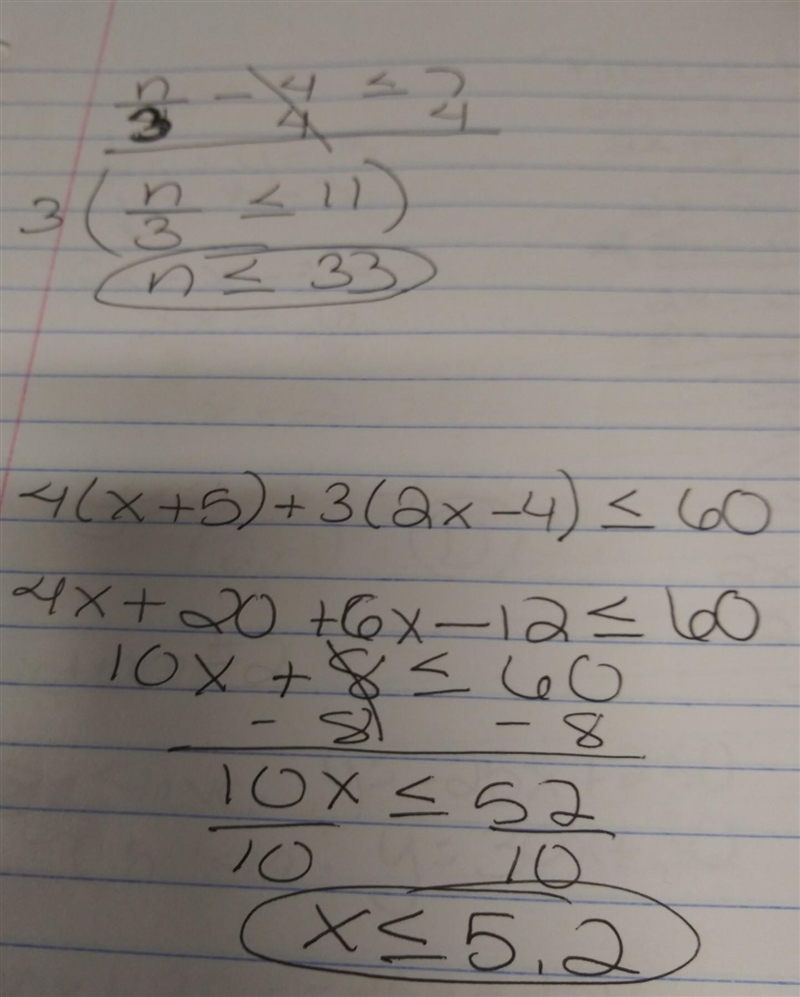 n/3 - 4 ≤ 7
4 4
3(n/3 ≤ 11)
n ≤ 33
4(x+5)+3(2x-4) ≤ 60
4x+20+6x-12 ≤ 60
10x+8 ≤ 60
-8 -8
10x ≤ 52
10 10
x ≤ 5.2